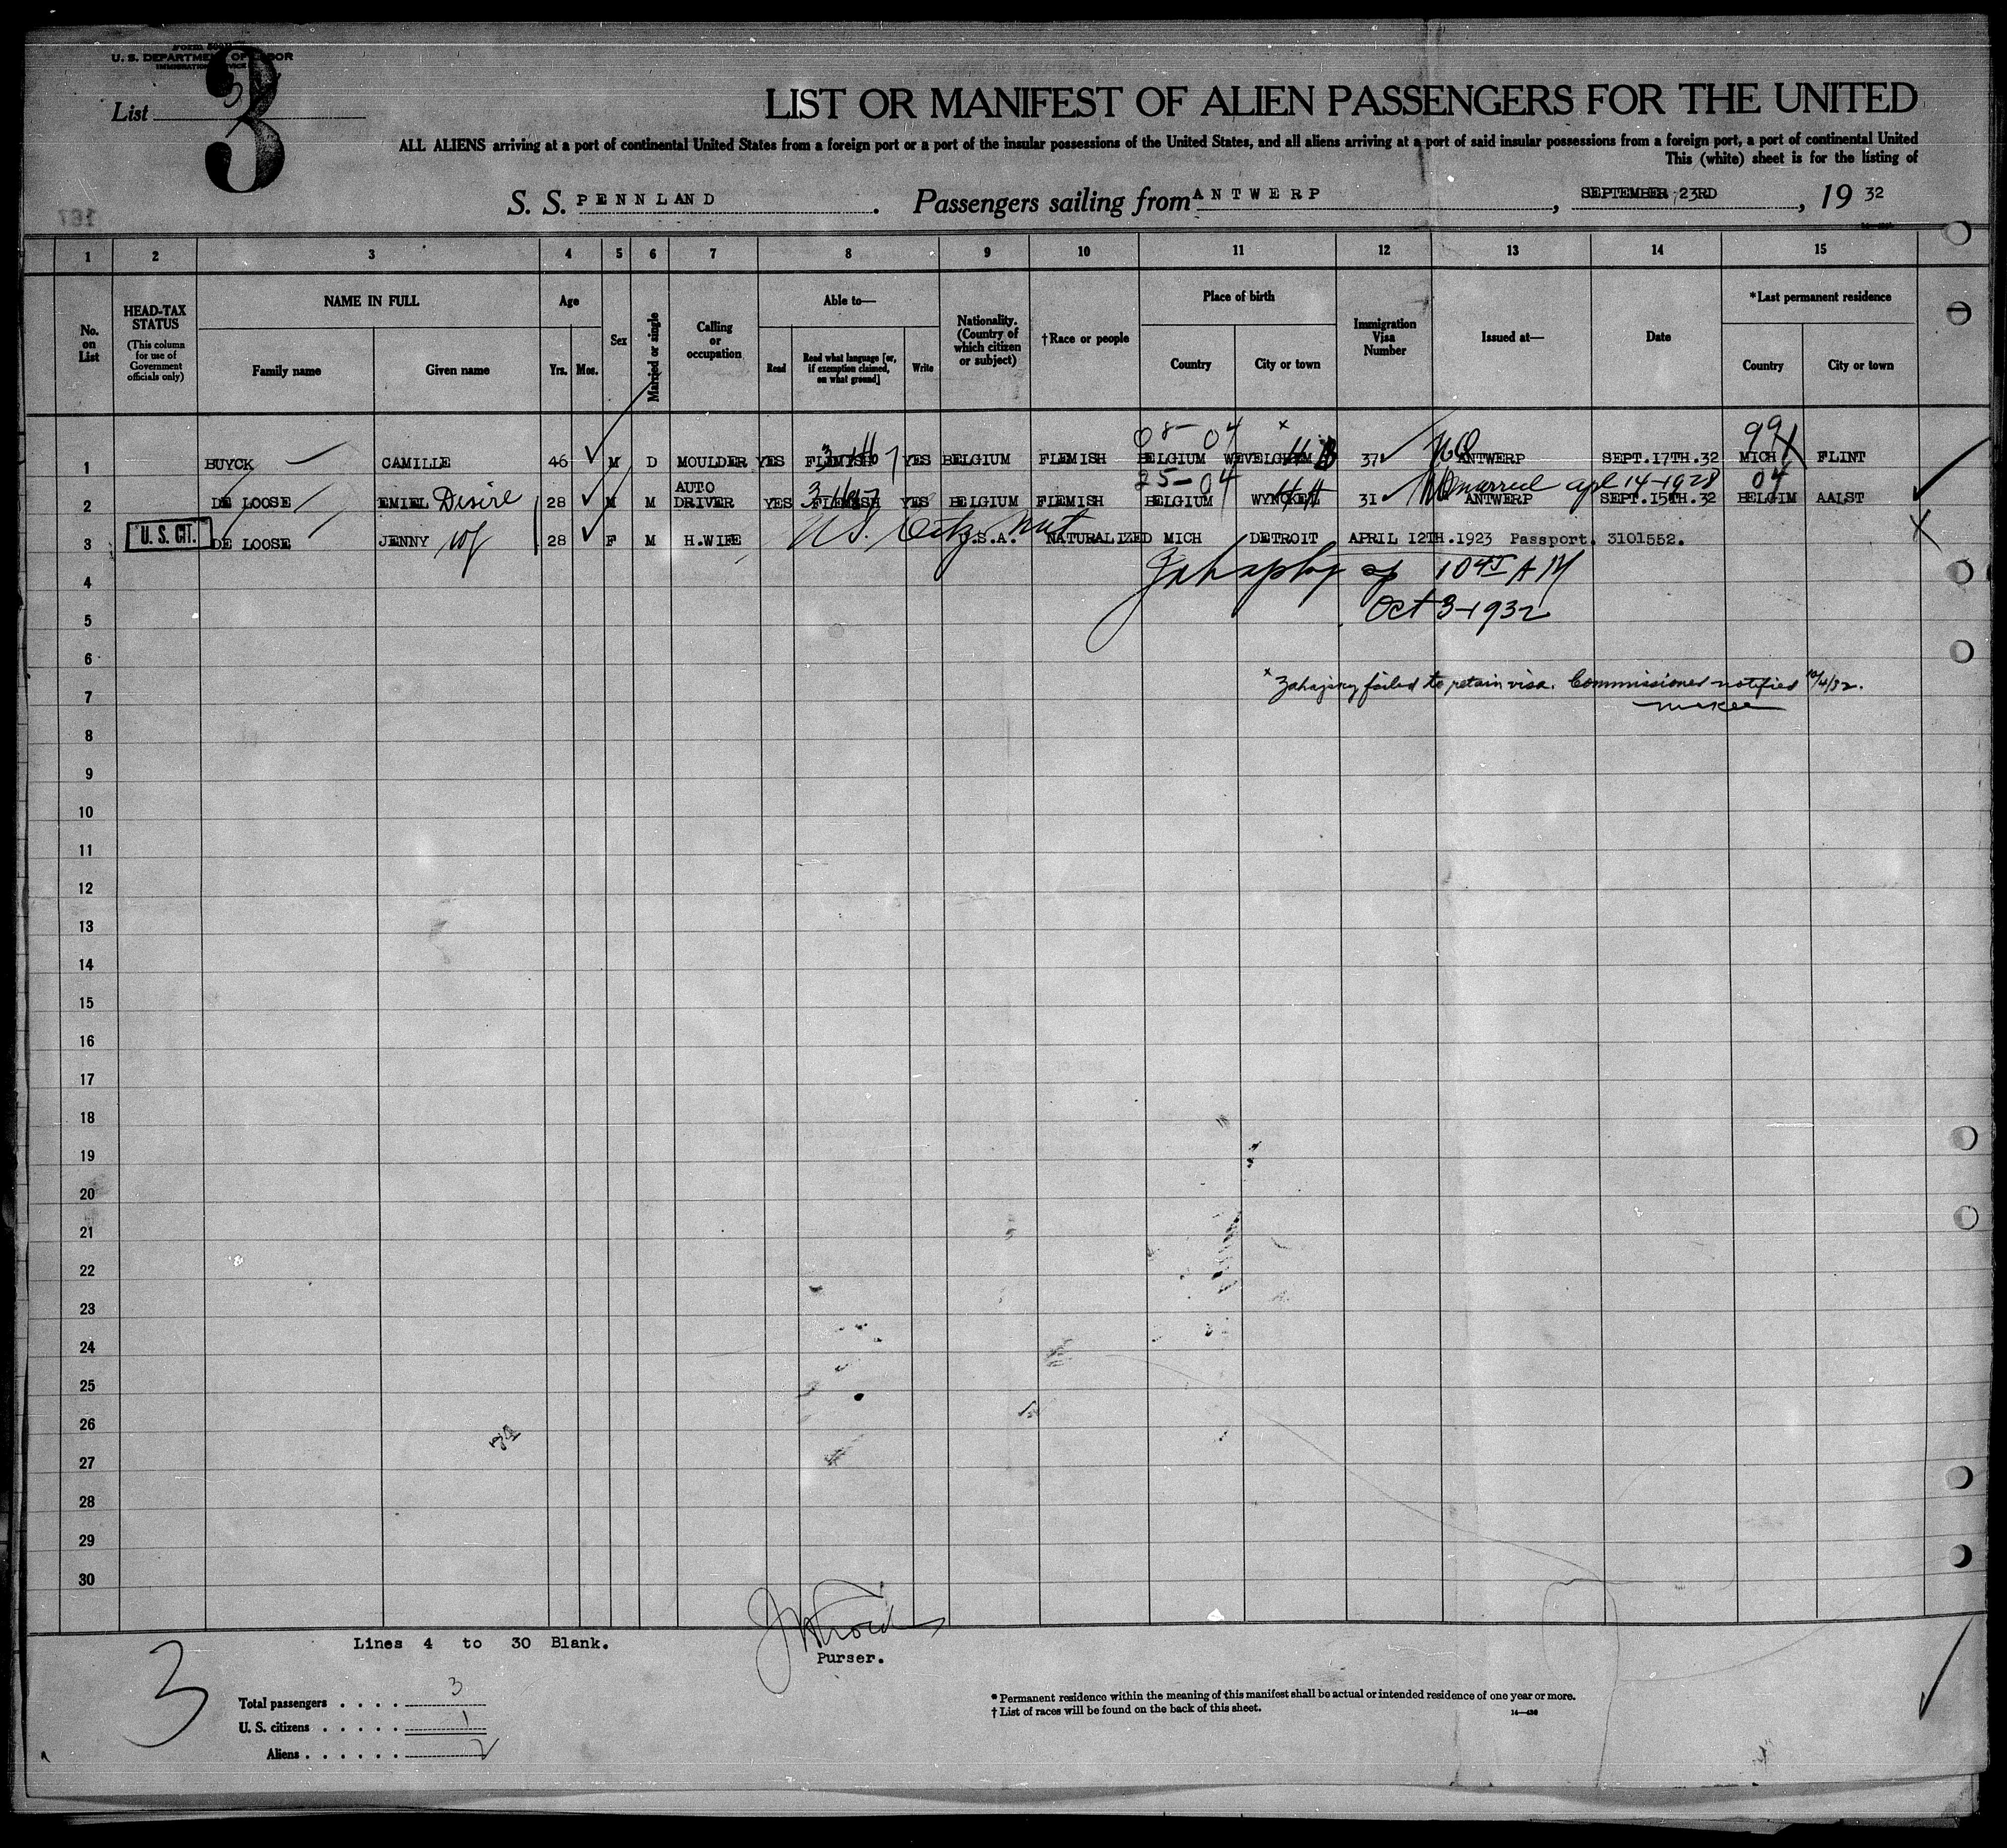 Form 500
U. S. DEPARTMENT OF LABOR
IMMIGRATION SERVICE
List 3
3
LIST OR MANIFEST OF ALIEN PASSENGERS FOR THE UNITED
ALL ALIENS arriving at a port of continental United States from a foreign port or a port of the insular possessions of the United States, and all aliens arriving at a port of said insular possessions from a foreign port, a port of continental United
This (white) sheet is for the listing of
S. S. PENNLAND . Passengers sailing from ANTWERP , SEPTEMBER 23RD , 19 32
167
1 2 3 4 5 6 7 8 9 10 11 12 13 14 15
No. on List
HEAD-TAX STATUS (This column for use of Government officials only)
NAME IN FULL
Family name
Given name
Age
Yrs. Mos.
Sex
Married or single
Calling or occupation
Able to—
Read
Read what language [or, if exemption claimed, on what ground]
Write
Nationality. (Country of which citizen or subject)
†Race or people
Place of birth
Country
City or town
Immigration Visa Number
Issued at—
Date
*Last permanent residence
Country
City or town
08-04 x 99
1 BUYCK CAMILLE 46 M D MOULDER YES FLEMISH YES BELGIUM FLEMISH BELGIUM WEVELGHEM 37 ANTWERP SEPT.17TH.32 MICH FLINT
25-04 married apl 14-1928 04
2 DE LOOSE EMIEL Desire 28 M M AUTO DRIVER YES FLEMISH YES BELGIUM FLEMISH BELGIUM 31 ANTWERP SEPT.15TH.32 BELGIM AALST
U. S. CIT.
3 DE LOOSE JENNY wf 28 F M H.WIFE U.S. Citz. Nat U.S.A. NATURALIZED MICH DETROIT APRIL 12TH.1923 Passport. 3101552.
4 1045 AM
5 Oct 3-1932
6
7 x Zahajsky failed to retain visa. Commissioner notified 10/4/32.
McKee
8
9
10
11
12
13
14
15
16
17
18
19
20
21
22
23
24
25
26
27
28
29
30
Lines 4 to 30 Blank.
Purser.
3
Total passengers . . . . 3
U. S. citizens . . . . . 1
Aliens . . . . . . 2
* Permanent residence within the meaning of this manifest shall be actual or intended residence of one year or more.
† List of races will be found on the back of this sheet.